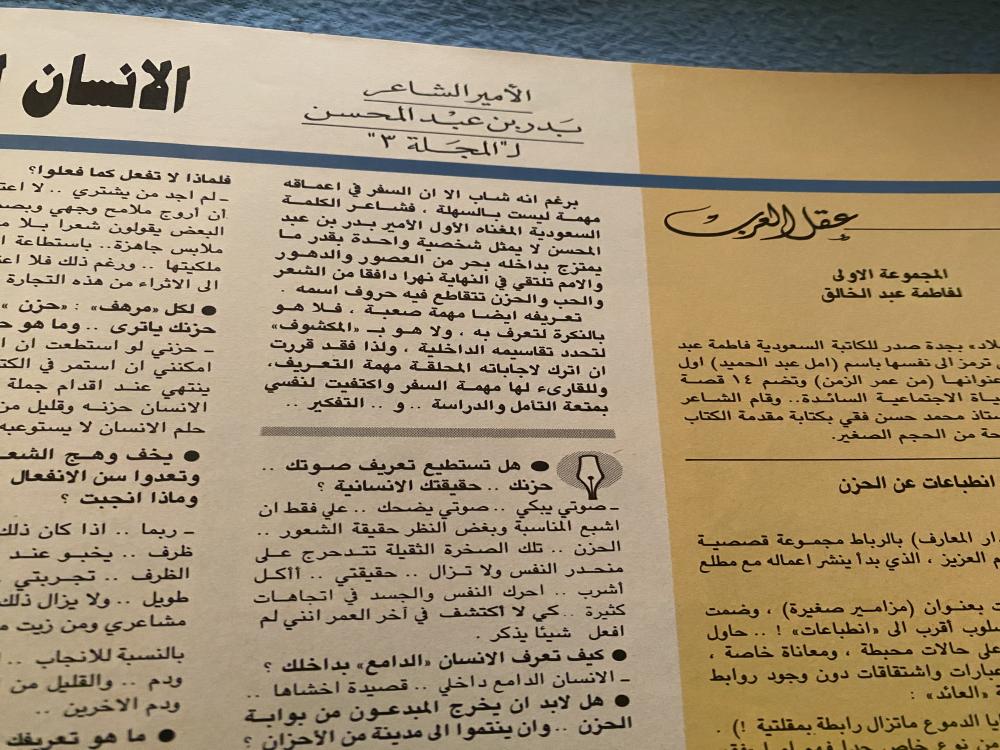 عقل العرب
المجموعة الاولى
لفاطمة عبد الخالق
لاد» بجدة صدر للكاتبة السعودية فاطمة عبد
ترمز الى نفسها باسم (امل عبد الحميد) اول
عنوانها (من عمر الزمن) وتضم ١٤ قصة
ياة الاجتماعية السائدة.. وقام الشاعر
ستاذ محمد حسن فقي بكتابة مقدمة الكتاب
حة من الحجم الصغير.
انطباعات عن الحزن
ار المعارف) بالرباط مجموعة قصصية
م العزيز ، الذي بدأ ينشر اعماله مع مطلع
ت بعنوان (مزامير صغيرة) ، وضمت
سلوب أقرب الى «انطباعات» ! .. حاول
على حالات محبطة ، ومعاناة خاصة ،
عبارات واشتقاقات دون وجود روابط
ة «العائد» :
يا الدموع ماتزال رابطة بمقلتية !) .
الأمير الشاعر
بدر بن عبد المحسن
لـ"المجلة ٣"
برغم انه شاب الا ان السفر في اعماقه
مهمة ليست بالسهلة ، فشاعر الكلمة
السعودية المغناه الأول الأمير بدر بن عبد
المحسن لا يمثل شخصية واحدة بقدر ما
يمتزج بداخله بحر من العصور والدهور
والامم تلتقي في النهاية نهرا دافقا من الشعر
والحب والحزن تتقاطع فيه حروف اسمه .
تعريفه ايضا مهمة صعبة ، فلا هو
بالنكرة لتعرف به ، ولا هو بـ «المكشوف»
لتحدد تقاسيمه الداخلية ، ولذا فقد قررت
ان اترك لاجاباته المحلقة مهمة التعريف،
وللقارىء لها مهمة السفر واكتفيت لنفسي
بمتعة التأمل والدراسة .. و .. التفكير ..
● هل تستطيع تعريف صوتك ..
حزنك .. حقيقتك الانسانية ؟
ـ صوتي يبكي .. صوتي يضحك .. علي فقط ان
اشبع المناسبة وبغض النظر حقيقة الشعور ..
الحزن .. تلك الصخرة الثقيلة تتدحرج على
منحدر النفس ولا تزال .. حقيقتي .. أأكل
أشرب .. احرك النفس والجسد في اتجاهات
كثيرة .. كي لا اكتشف في آخر العمر انني لم
افعل شيئا يذكر .
● كيف تعرف الانسان «الدامع» بداخلك ؟
ـ الانسان الدامع داخلي .. قصيدة اخشاها ..
● هل لابد ان يخرج المبدعون من بوابة
الحزن .. وان ينتموا الى مدينة من الأحزان ؟
الانسان
فلماذا لا تفعل كما فعلوا؟
ـ لم اجد من يشتري .. لا اعتـ
ان أروج ملامح وجهي وبصمـ
البعض يقولون شعرا بلا مـ
ملابس جاهزة.. باستطاعة ا
ملكيتها .. ورغم ذلك فلا اعتـ
الى الاثراء من هذه التجارة
● لكل «مرهف» : «حزن»
حزنك ياترى .. وما هو حـ
ـ حزني لو استطعت ان ا
امكنني ان استمر في الكتـ
ينتهي عند اقدام جملة
الانسان حزنه وقليل من
حلم الانسان لا يستوعبه
● يخف وهج الشعـ
وتعدوا سن الانفعال
وماذا انجبت ؟
ـ ربما .. اذا كان ذلك
ظرف .. يخبو عند
الظرف .. تجربتي
طويل .. ولا يزال ذلك
مشاعري ومن زيت مـ
بالنسبة للانجاب ..
ودم .. والقليل من
ودم الاخرين ..
● ما هو تعريفك